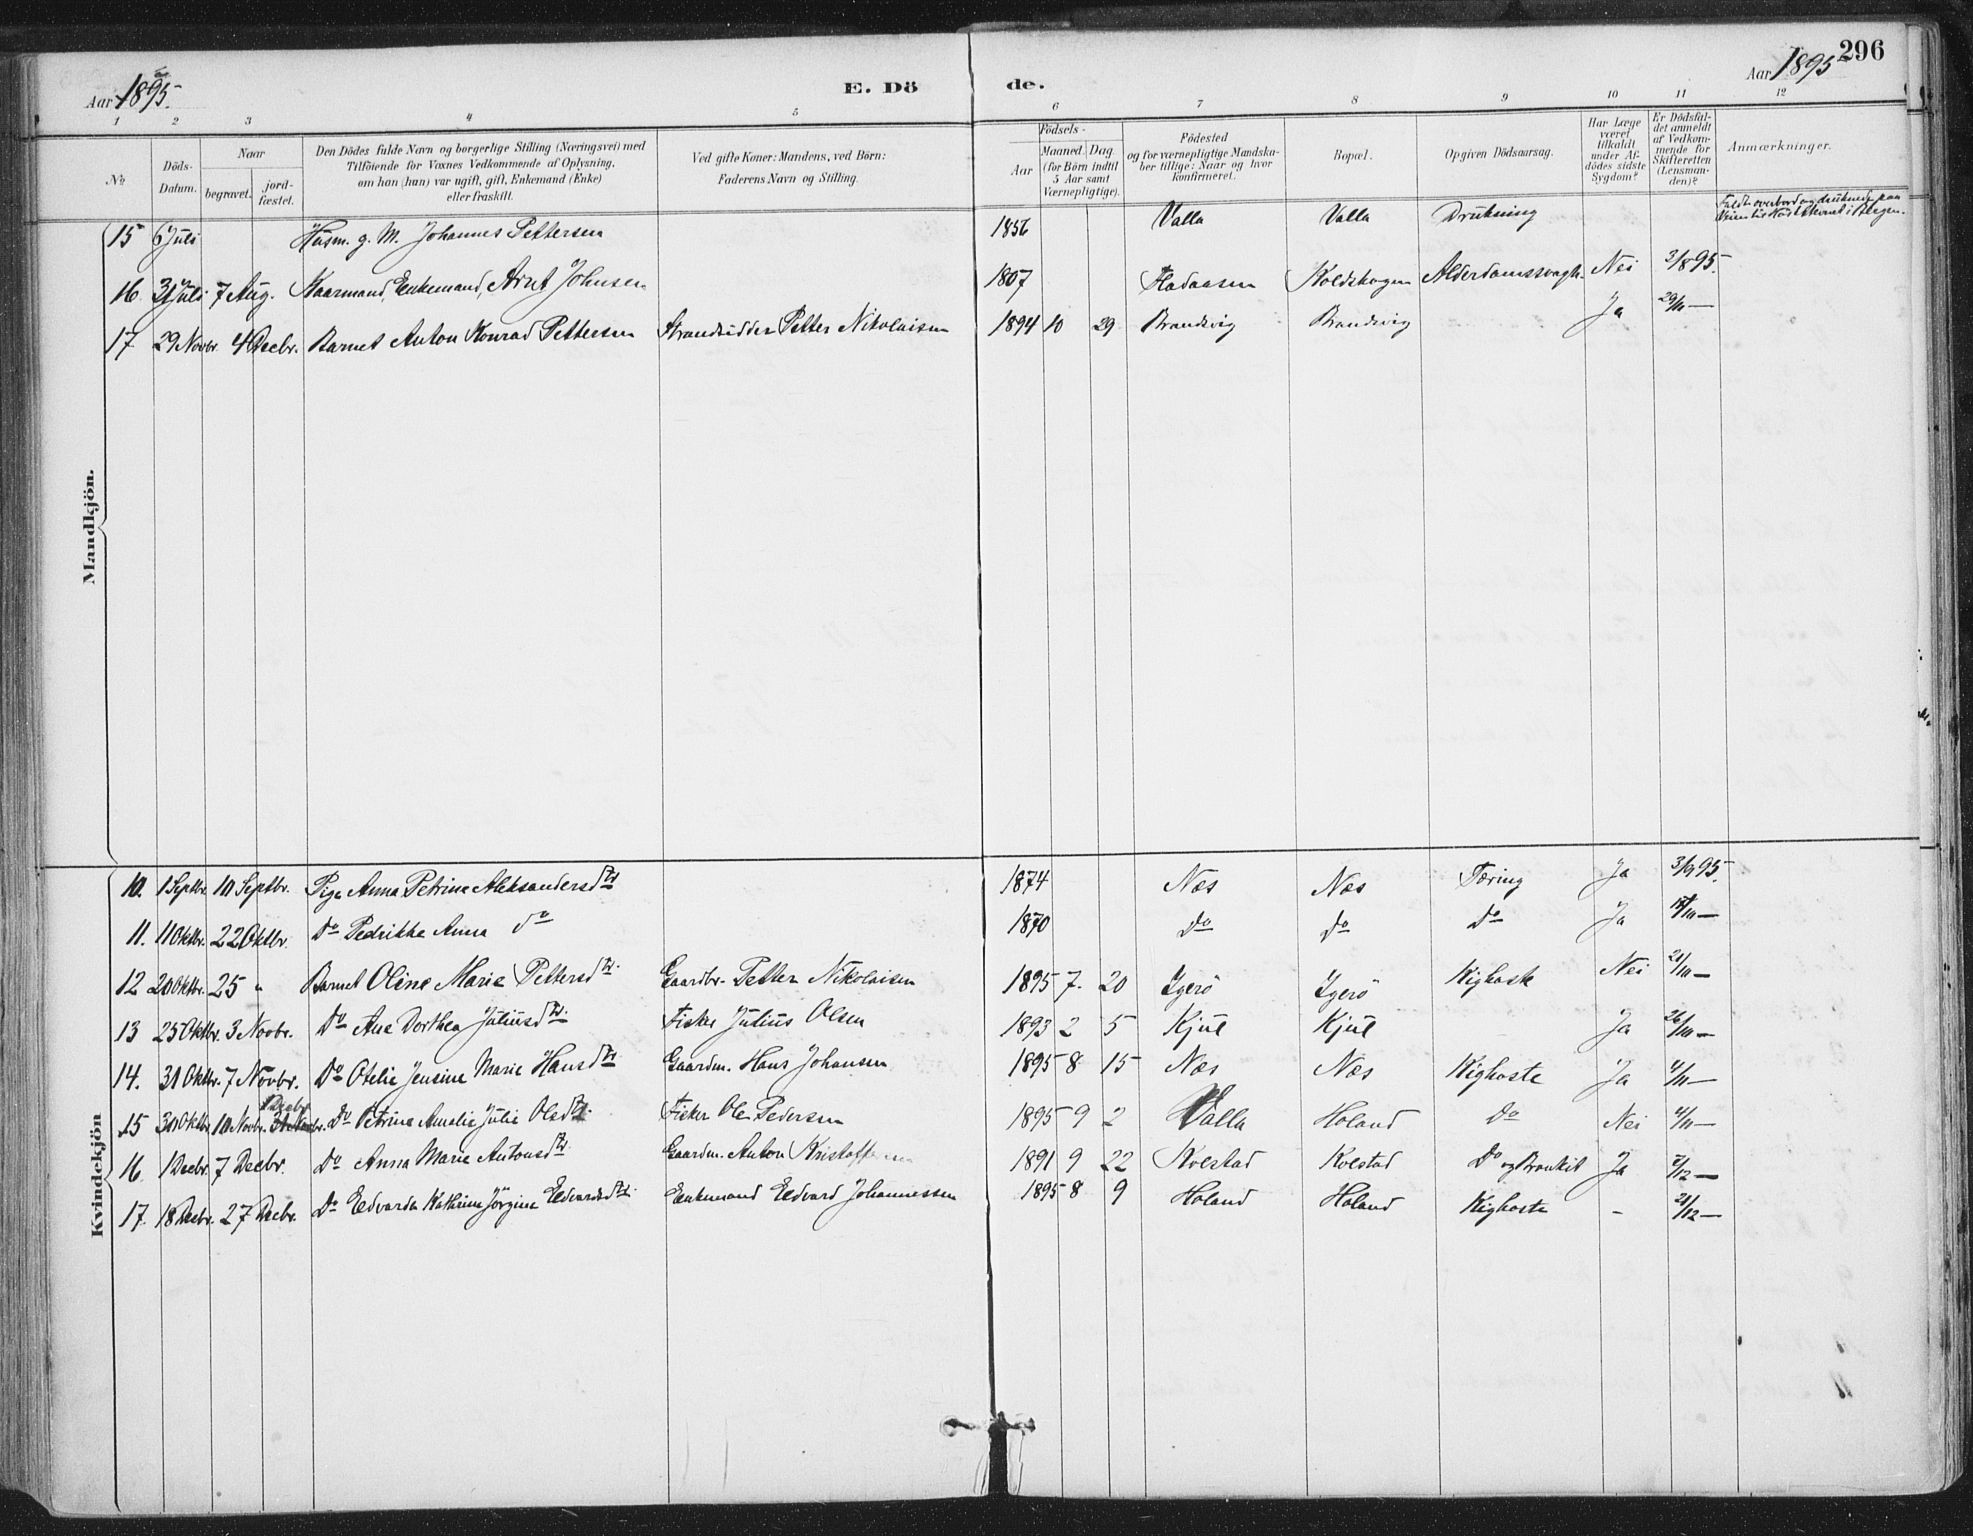 296
Aar 1895.
E. Dö
de.
Aar 1895
1 2 3 4 5 6 7 8 9 10 11 12
No.
Döds-Datum.
Naar
begravet.
jord-fæstet.
Den Dödes fulde Navn og borgerlige Stilling (Næringsvei) med
Tilföiende for Voxnes Vedkommende af Oplysning,
om han (hun) var ugift, gift, Enkemand (Enke)
eller fraskilt.
Ved gifte Koner: Mandens, ved Börn:
Faderens Navn og Stilling.
Födsels-
Aar
Maaned.
Dag.
(for Börn indtil
5 Aar samt
Værnepligtige).
Födested
og for værnepligtige Mandska-
ber tillige: Naar og hvor
konfirmeret.
Bopæl.
Opgiven Dödsaarsag.
Har Læge
været
tilkaldt
under Af-
dödes sidste
Sygdom?
Er Dödsfal-
det anmeldt
af Vedkom-
mende for
Skifteretten
(Lensman-
den)?
Anmærkninger.
Mandkjön.
15 6 Juli Husm. g. M. Johannes Pettersen 1856 Valla Valla Drukning Faldt overbord og druknede paa
16 31 Juli 7 Aug. Kaarmand, Enkemand, Arnt Johnsen 1807 Fladaasen Koldskogen Alderdomssvagh. Nei 3/8 95.
17 29 Novbr 4 Decbr. Barnet Anton Konrad Pettersen Strandsidder Petter Nikolaisen 1894 10 29 Brandsvig Brandsvig Ja 29/11 —
Kvindekjön
10. 1 Septbr. 10 Septbr. Pige Anna Petrine Aleksandersdtr 1874 Næs Næs Tæring Ja 3/9 95.
11. 11 Oktbr. 22 Oktbr. Do Pedrikke Anna do 1870 Do Do Do Ja 15/10 —
12 20 Oktbr. 25 " Barnet Oline Marie Pettersdtr. Gaardbr. Petter Nikolaisen 1895 7. 20 Igerö Igerö Kighoste Nei 21/10 —
13 25 Oktbr. 3 Novbr. Do Ane Dorthea Juliusdtr. Fisker Julius Olsen 1893 2 5 Kjul Kjul Ja 26/10 —
14. 31 Oktbr. 7 Novbr. Do Otelie Jensine Marie Hansdtr Gaardm. Hans Johansen 1895 8 15 Næs Næs Kighoste Ja 4/11 —
1 Decbr
15 30 Oktbr. 10 Novbr. Do Petrine Amalie Julie Olsdtr. Fisker Ole Pedersen 1895 9 2 Valla Holand Do Nei 4/11 —
16 1 Decbr. 7 Decbr. Do Anna Marie Antonsdtr. Gaardm. Anton Kristoffersen 1891 9 22 Kvestad Kvestad Do og Bronkit Ja 7/12 —
17. 18 Decbr. 27 Decbr. Do Edvarda Kathrine Jörgine Edvardsdtr. Enkemand Edvard Johannessen 1895 8 9 Holand Holand Kighoste - 21/12 —